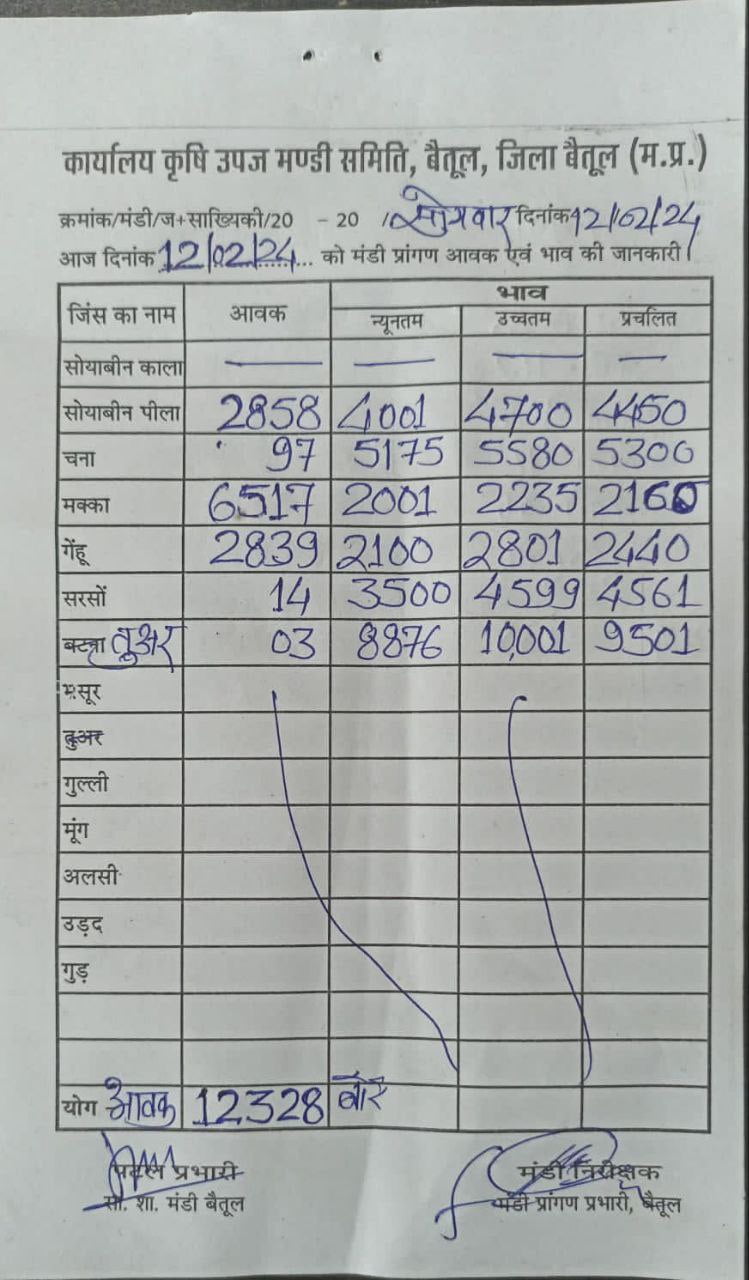 कार्यालय कृषि उपज मण्डी समिति, बैतूल, जिला बैतूल (म.प्र.)
क्रमांक/मंडी/ज+साख्यिकी/20 - 20 / सोमवार दिनांक 12/02/24
आज दिनांक 12/02/24 ... को मंडी प्रांगण आवक एवं भाव की जानकारी।
जिंस का नाम आवक भाव
न्यूनतम उच्चतम प्रचलित
सोयाबीन काला — — — —
सोयाबीन पीला 2858 4001 4700 4450
चना 97 5175 5580 5300
मक्का 6517 2001 2235 2160
गेंहू 2839 2100 2801 2440
सरसों 14 3500 4599 4561
बटना तूअर 03 8876 10,001 9501
मसूर
तुअर
गुल्ली
मूंग
अलसी
उड़द
गुड़
योग आवक 12328 बोरे
प्रभारी मंडी निरीक्षक
सां. शा. मंडी बैतूल मंडी प्रांगण प्रभारी, बैतूल